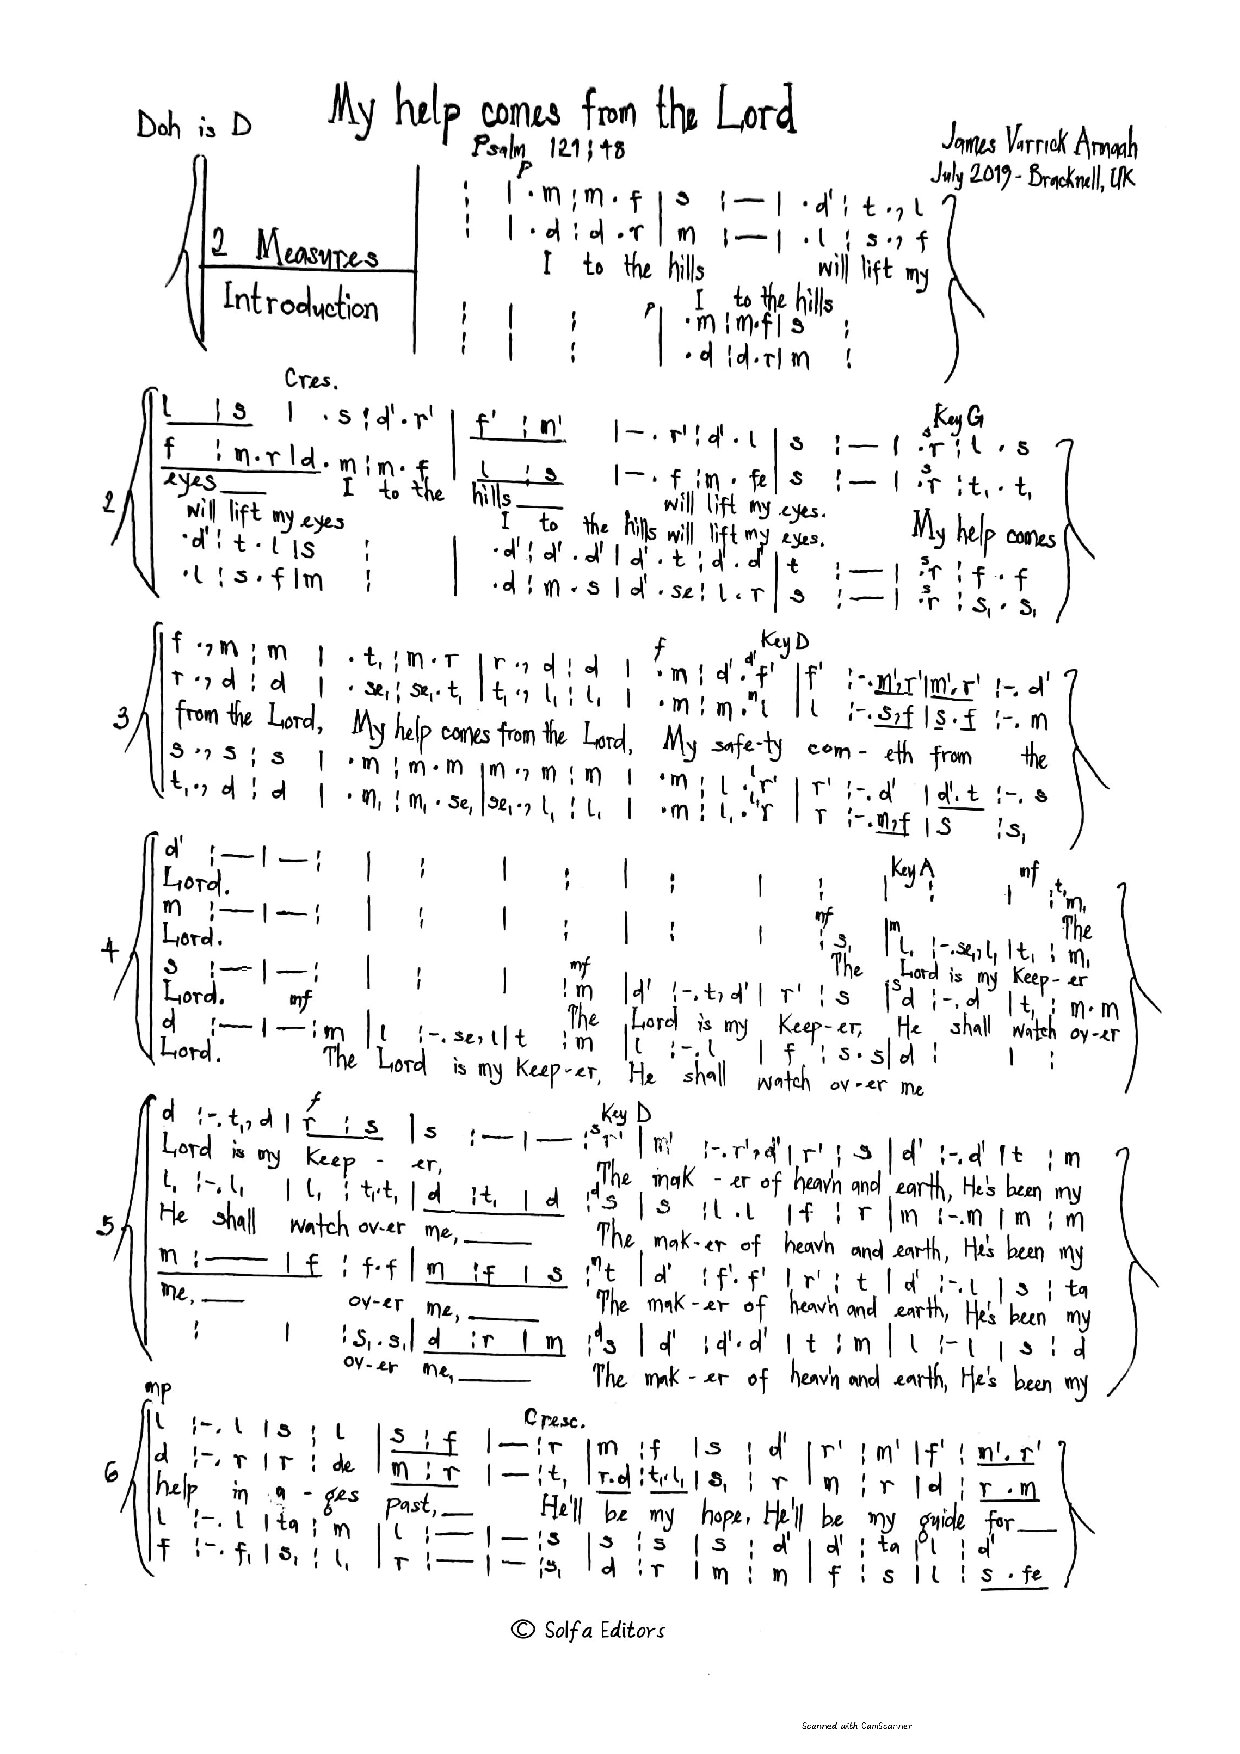 My help comes from the Lord
Doh is D
Psalm 121 ; 48
James Varrick Armaah
July 2019 - Bracknell, UK
p
: | . m ; m . f | s : — | . d' : t . , l
2 Measures
: | . d : d . r | m : — | . l : s . , f
I to the hills will lift my
Introduction
I to the hills
: | : p | . m : m . f | s :
: | : | . d : d . r | m :
Cres.
Key G
l : s | . s : d' . r' | f' : m' | — . r' : d' . l | s : — | . s r : l . s
f : m . r | d . m : m . f | l : s | — . f : m . fe | s : — | . s r : t, . t,
eyes___ I to the hills___ will lift my eyes.
2
will lift my eyes I to the hills will lift my eyes. My help comes
. d' : t . l | s : | . d' : d' . d' | d' . t : d' . d' | t : — | . s r : f . f
. l : s . f | m : | . d : m . s | d' . se : l . r | s : — | . s r : s, . s,
f Key D
f . , m : m | . t, : m . r | r . , d : d | . m : d' . d' f' | f' : - . m' , r' | m' . r' : - . d'
r . , d : d | . se, : se, . t, | t, . , l, : l, | . m : m . m l | l : - . s , f | s . f : - . m
3
from the Lord, My help comes from the Lord, My safe-ty com - eth from the
s . , s : s | . m : m . m | m . , m : m | . m : l . l r' | r' : - . d' | d' . t : - . s
t, . , d : d | . m, : m, . se, | se, . , l, : l, | . m : l, . l, r | r : - . m , f | s : s,
d' : — | — : | : | : | : | : Key A | : | mf : t, m,
Lord. The
m : — | — : | : | : | : | mf : s, | m l, : - . se, , l, | t, : m,
Lord. The Lord is my Keep-er
4
s : — | — : | : | mf : m | d' : - . t , d' | r' : s | s d : - . d | t, : m . m
Lord. The Lord is my Keep-er, He shall watch ov-er
mf
d : — | — : m | l : - . se , l | t : m | l : - . l | f : s . s | d : | :
Lord. The Lord is my Keep-er, He shall watch ov-er me
f Key D
d : - . t, , d | r : s | s : — | — : s r' | m' : - . r' , d' | r' : s | d' : - . d' | t : m
Lord is my Keep - er, The mak - er of heav'n and earth, He's been my
l, : - . l, | l, : t, . t, | d : t, | d : d s | s : l . l | f : r | m : - . m | m : m
5
He shall watch ov-er me,___ The mak-er of heav'n and earth, He's been my
m : — | f : f . f | m : f | s : m t | d' : f' . f' | r' : t | d' : - . l | s : ta
me,___ ov-er me,___ The mak-er of heav'n and earth, He's been my
: | : s, . s, | d : r | m : d s | d' : d' . d' | t : m | l : - l | s : d
ov-er me,___ The mak-er of heav'n and earth, He's been my
mp Cresc.
l : - . l | s : l | s : f | — : r | m : f | s : d' | r' : m' | f' : m' . r'
d : - . r | r : de | m : r | — : t, | r . d : t, . l, | s, : r | m : r | d : r . m
6
help in a - ges past,___ He'll be my hope, He'll be my guide for___
l : - . l | ta : m | l : — | — : s | s : s | s : d' | d' : ta | l : d'
f : - . f, | s, : l, | r : — | — : s, | d : r | m : m | f : s | l : s . fe
© Solfa Editors
Scanned with CamScanner